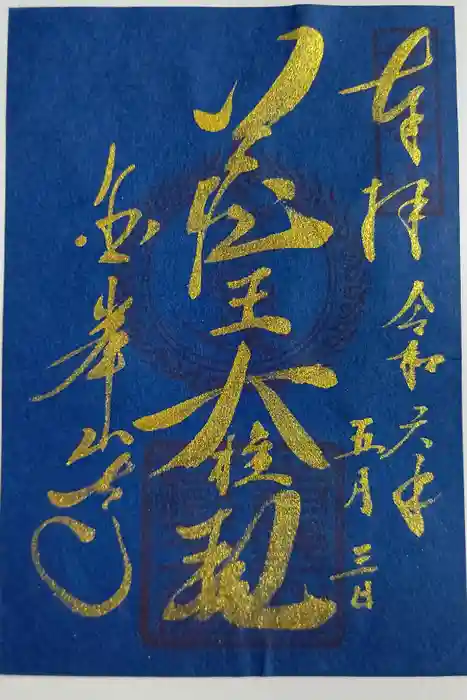 奉拝
令和六年
五月三日
蔵王大権現
金峯山寺